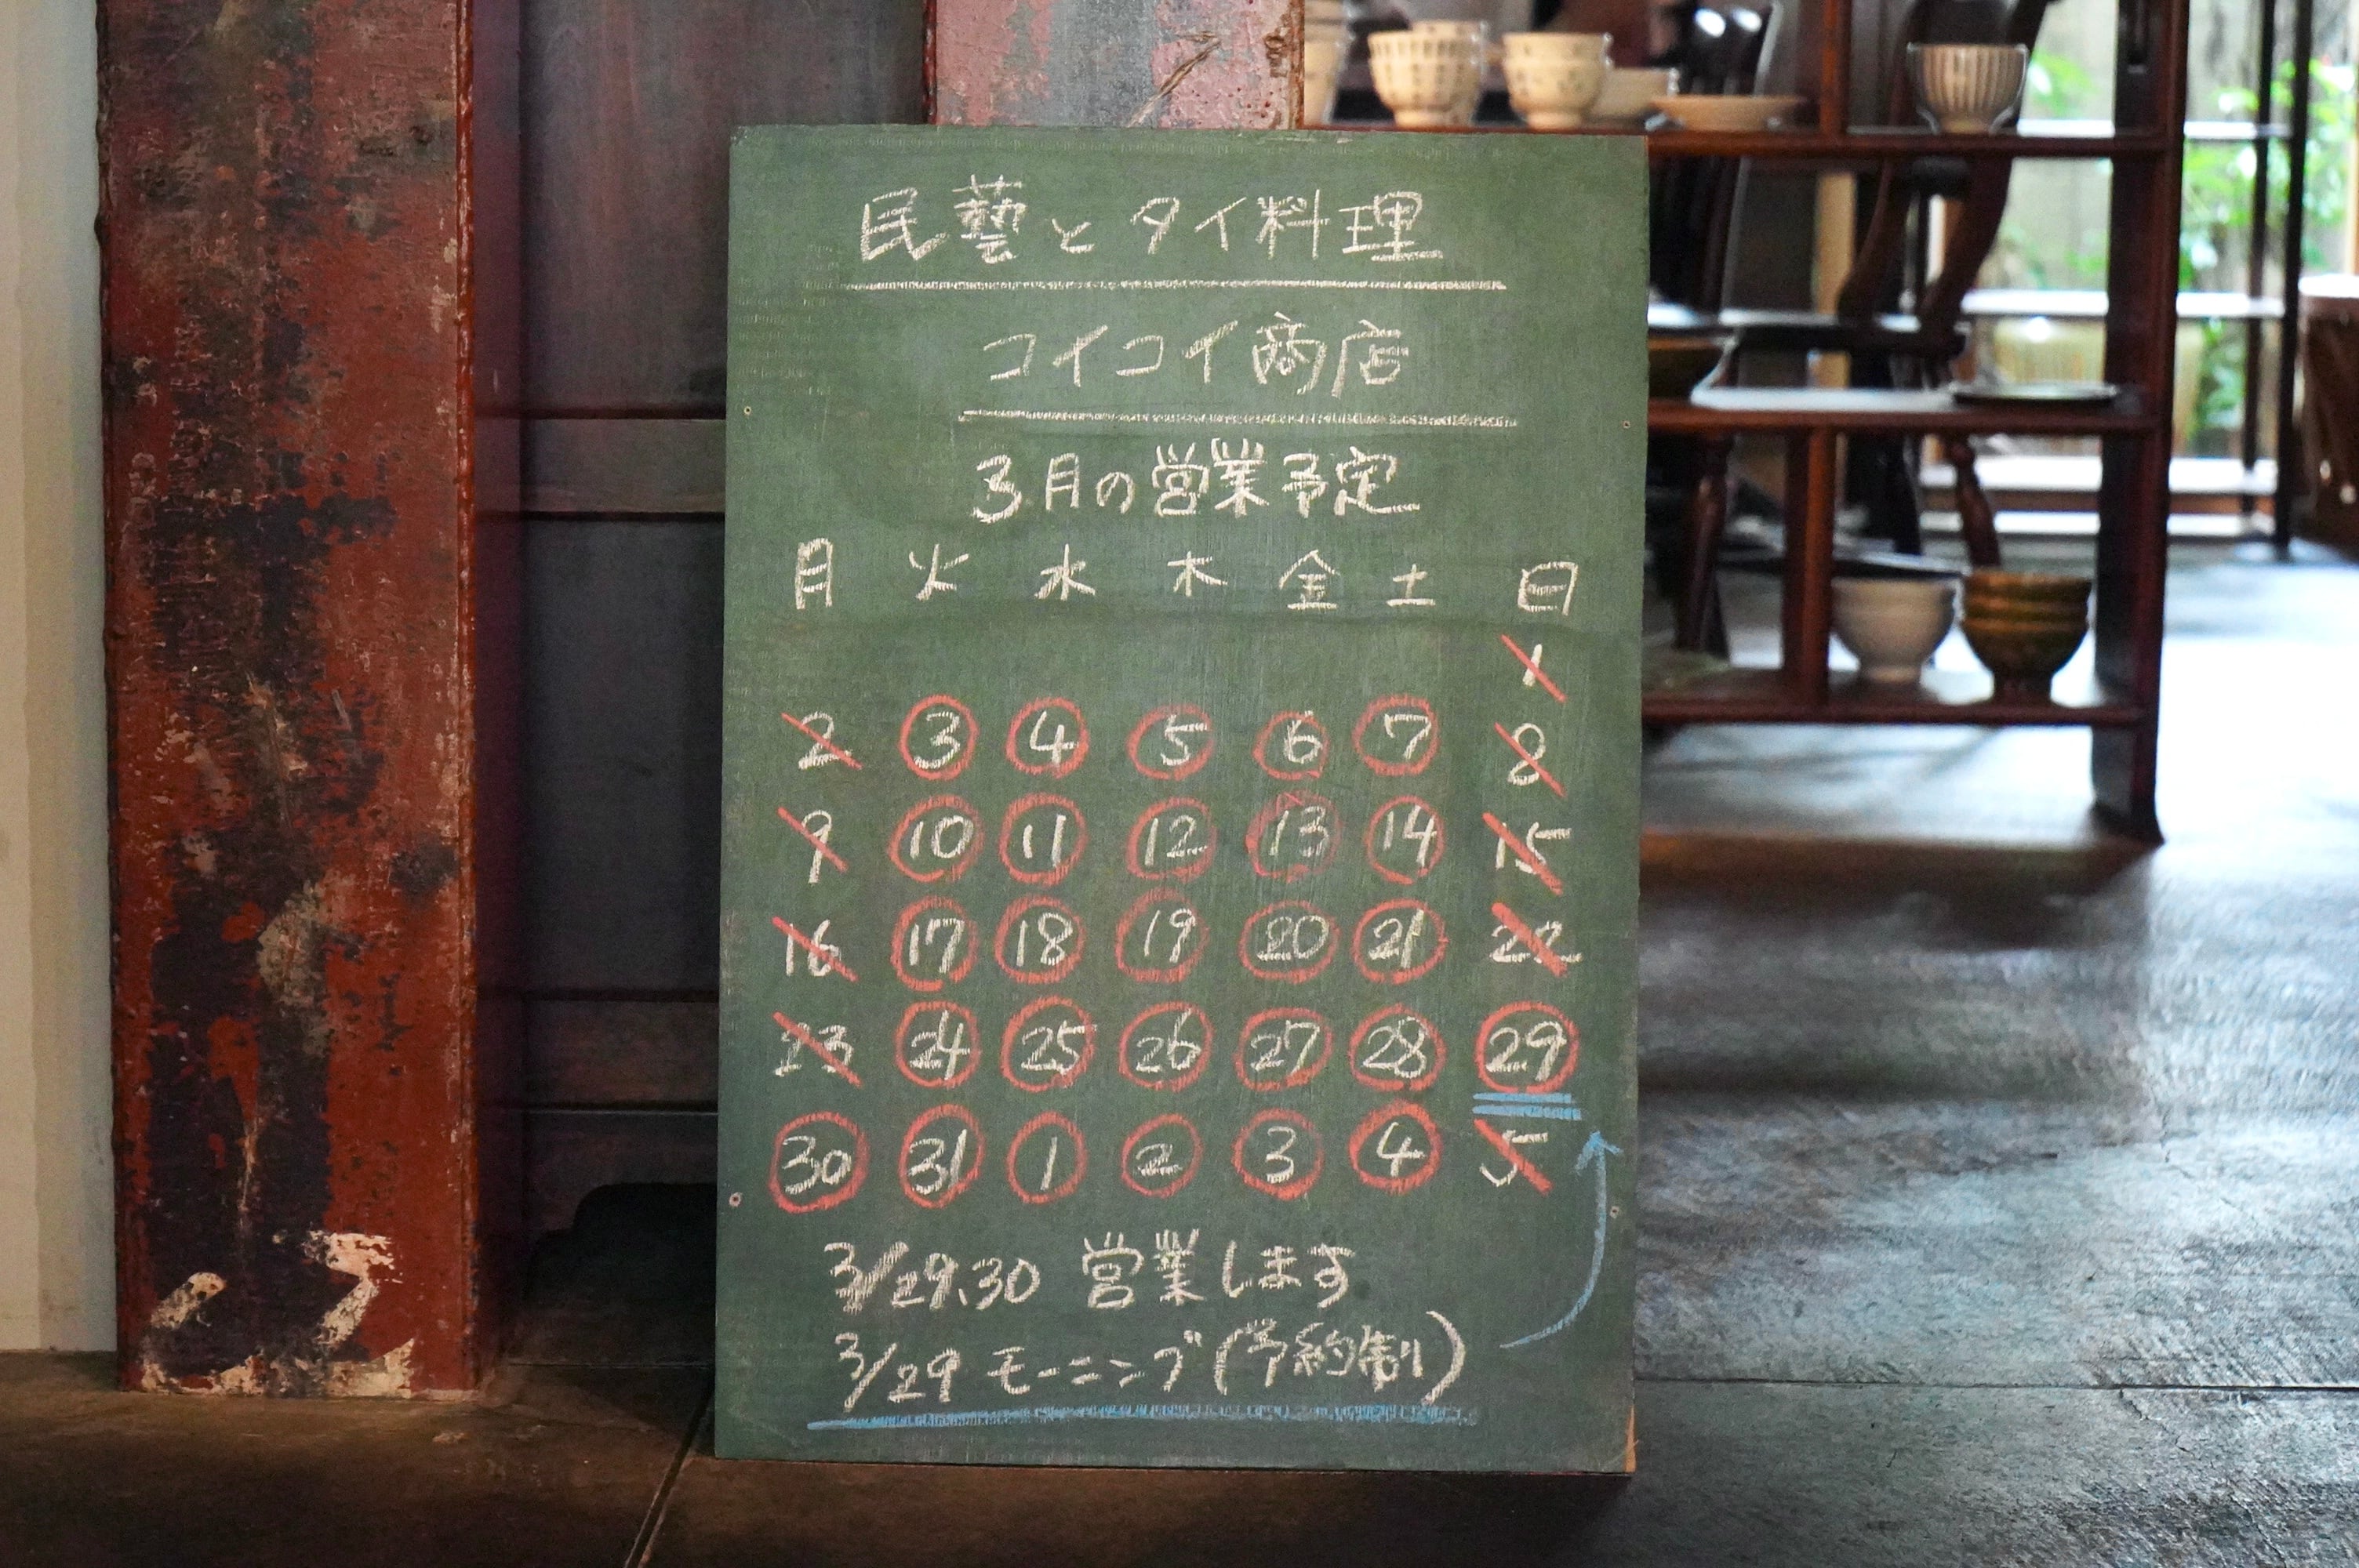 民藝とタイ料理
コイコイ商店
3月の営業予定
月 火 水 木 金 土 日
1
2 3 4 5 6 7 8
9 10 11 12 13 14 15
16 17 18 19 20 21 22
23 24 25 26 27 28 29
30 31 1 2 3 4 5
3/29.30 営業します
3/29 モーニング(予約制)